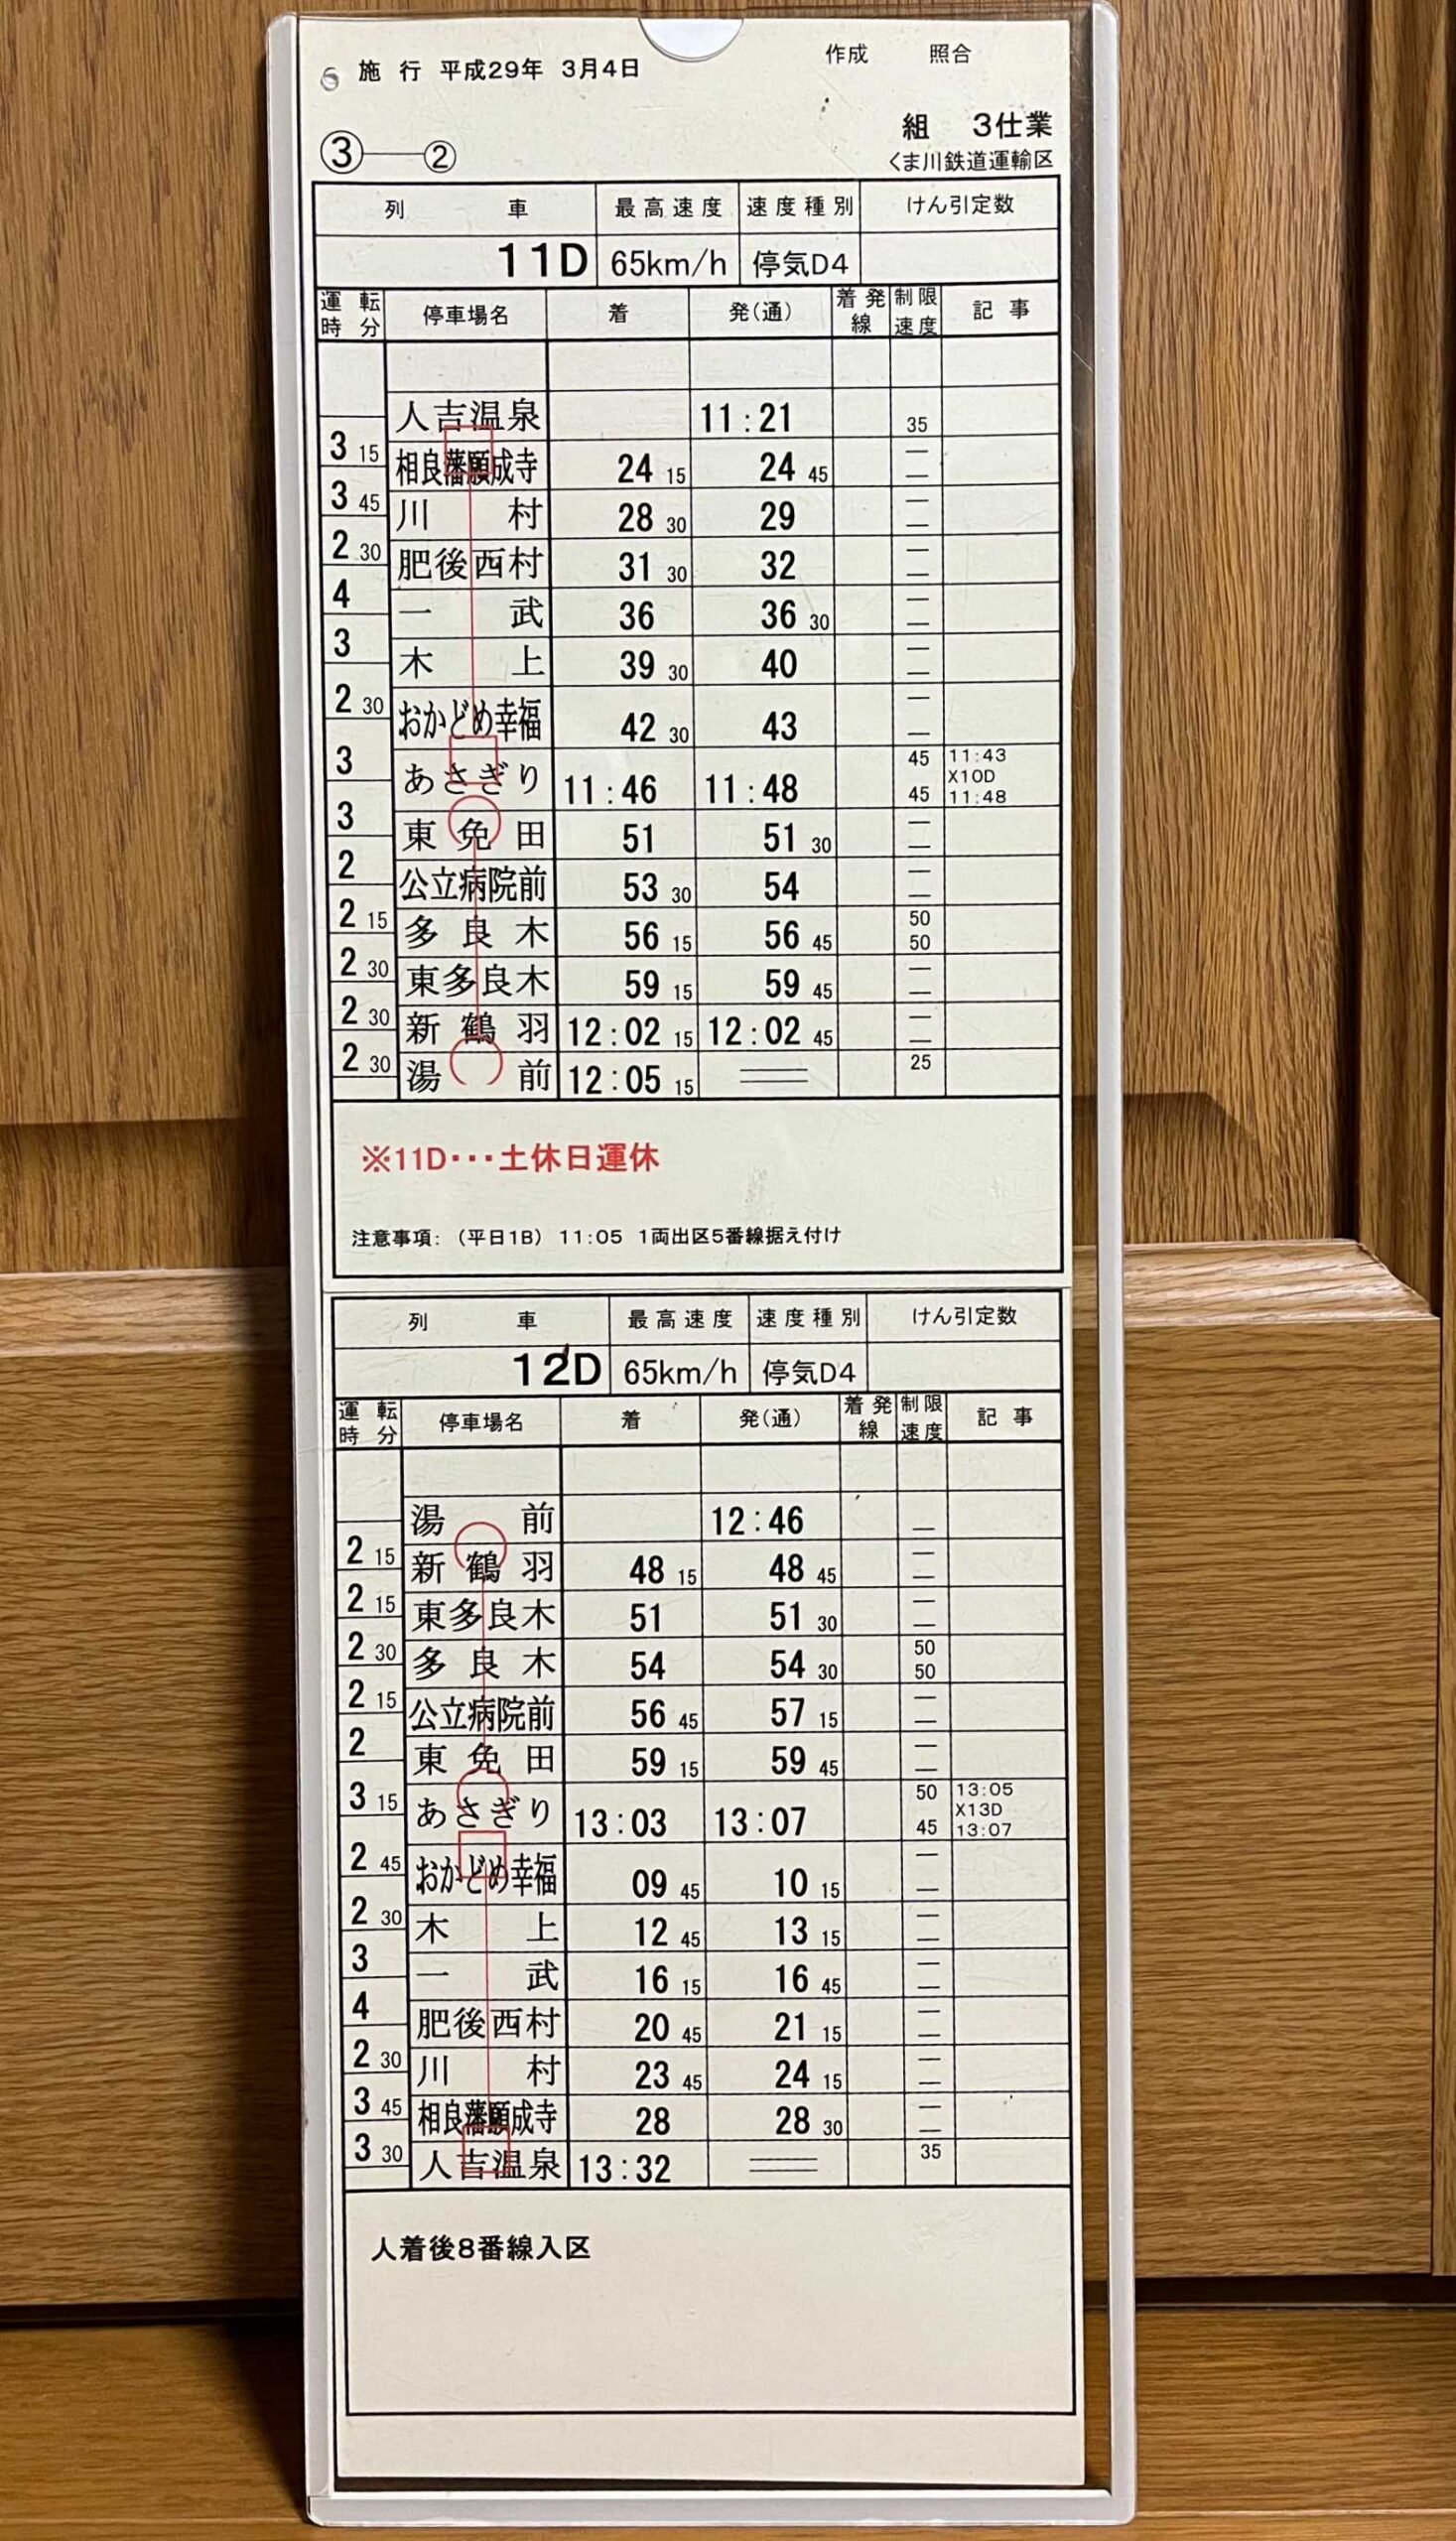 施行 平成29年 3月4日 作成 照合
組 3仕業
③—② くま川鉄道運輸区
列車 最高速度 速度種別 けん引定数
11D 65km/h 停気D4
運転時分 停車場名 着 発(通) 着発線 制限速度 記事
人吉温泉 11:21 35
3 15
相良藩願成寺 24 15 24 45 — —
3 45
川村 28 30 29 — —
2 30
肥後西村 31 30 32 — —
4
一武 36 36 30 — —
3
木上 39 30 40 — —
2 30
おかどめ幸福 42 30 43 — —
3
あさぎり 11:46 11:48 45 45 11:43 X10D 11:48
3
東免田 51 51 30 — —
2
公立病院前 53 30 54 — —
2 15
多良木 56 15 56 45 50 50
2 30
東多良木 59 15 59 45 — —
2 30
新鶴羽 12:02 15 12:02 45 — —
2 30
湯前 12:05 15 25
※11D・・・土休日運休
注意事項:(平日1B) 11:05 1両出区5番線据え付け
列車 最高速度 速度種別 けん引定数
12D 65km/h 停気D4
運転時分 停車場名 着 発(通) 着発線 制限速度 記事
湯前 12:46 —
2 15
新鶴羽 48 15 48 45 — —
2 15
東多良木 51 51 30 — —
2 30
多良木 54 54 30 50 50
2 15
公立病院前 56 45 57 15 — —
2
東免田 59 15 59 45 — —
3 15
あさぎり 13:03 13:07 50 45 13:05 X13D 13:07
2 45
おかどめ幸福 09 45 10 15 — —
2 30
木上 12 45 13 15 — —
3
一武 16 15 16 45 — —
4
肥後西村 20 45 21 15 — —
2 30
川村 23 45 24 15 — —
3 45
相良藩願成寺 28 28 30 — —
3 30
人吉温泉 13:32 35
人着後8番線入区